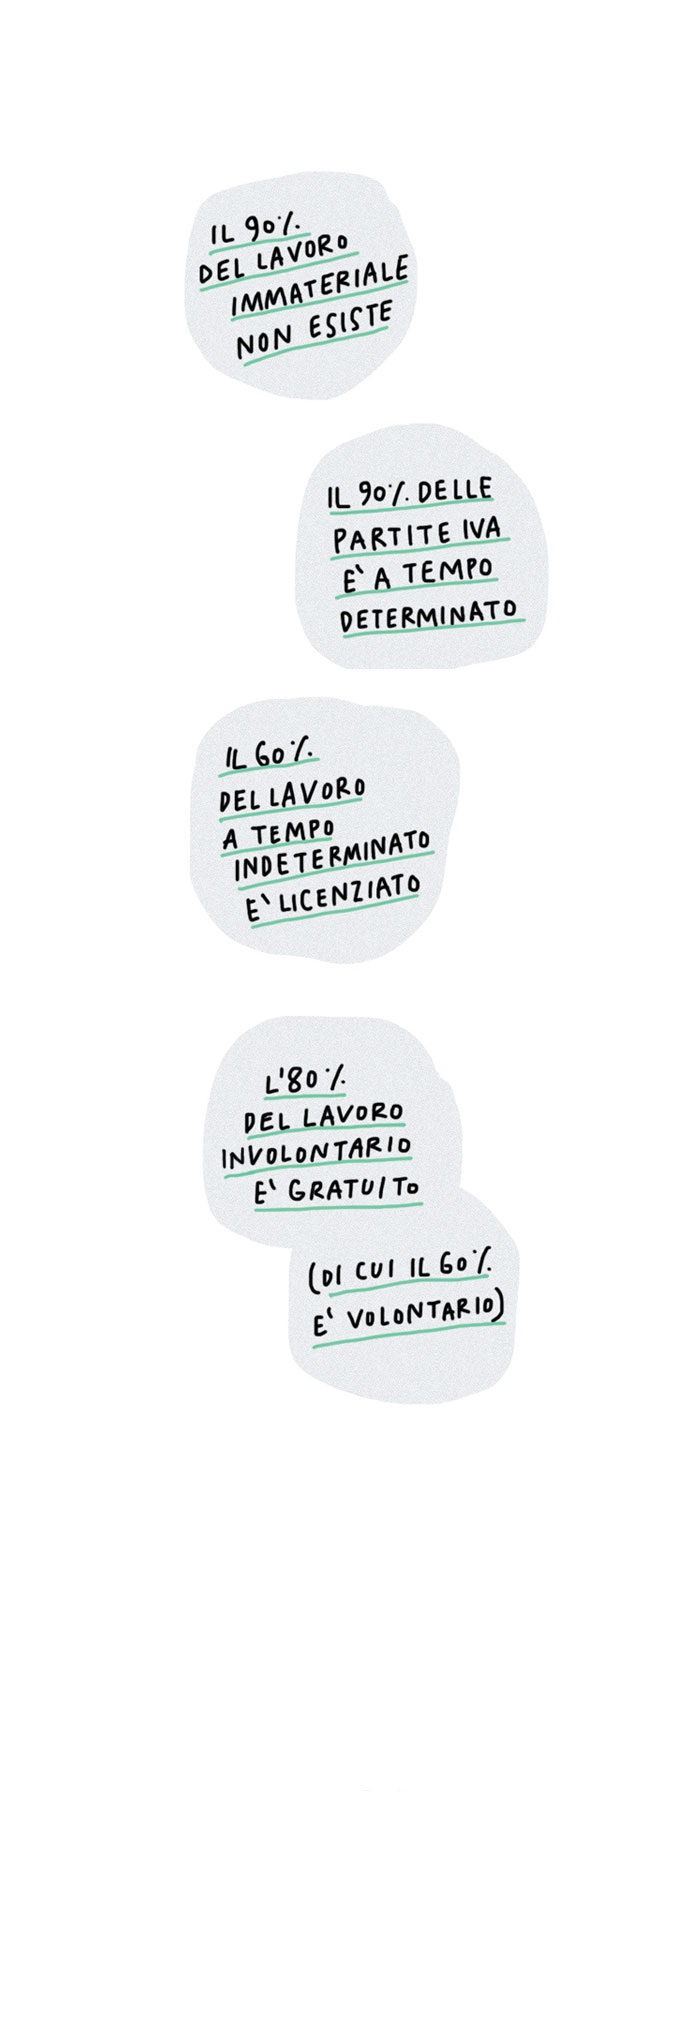 IL 90%
DEL LAVORO
IMMATERIALE
NON ESISTE
IL 90% DELLE
PARTITE IVA
E` A TEMPO
DETERMINATO
IL 60%
DEL LAVORO
A TEMPO
INDETERMINATO
E` LICENZIATO
L'80%
DEL LAVORO
INVOLONTARIO
E` GRATUITO
(DI CUI IL 60%
E` VOLONTARIO)